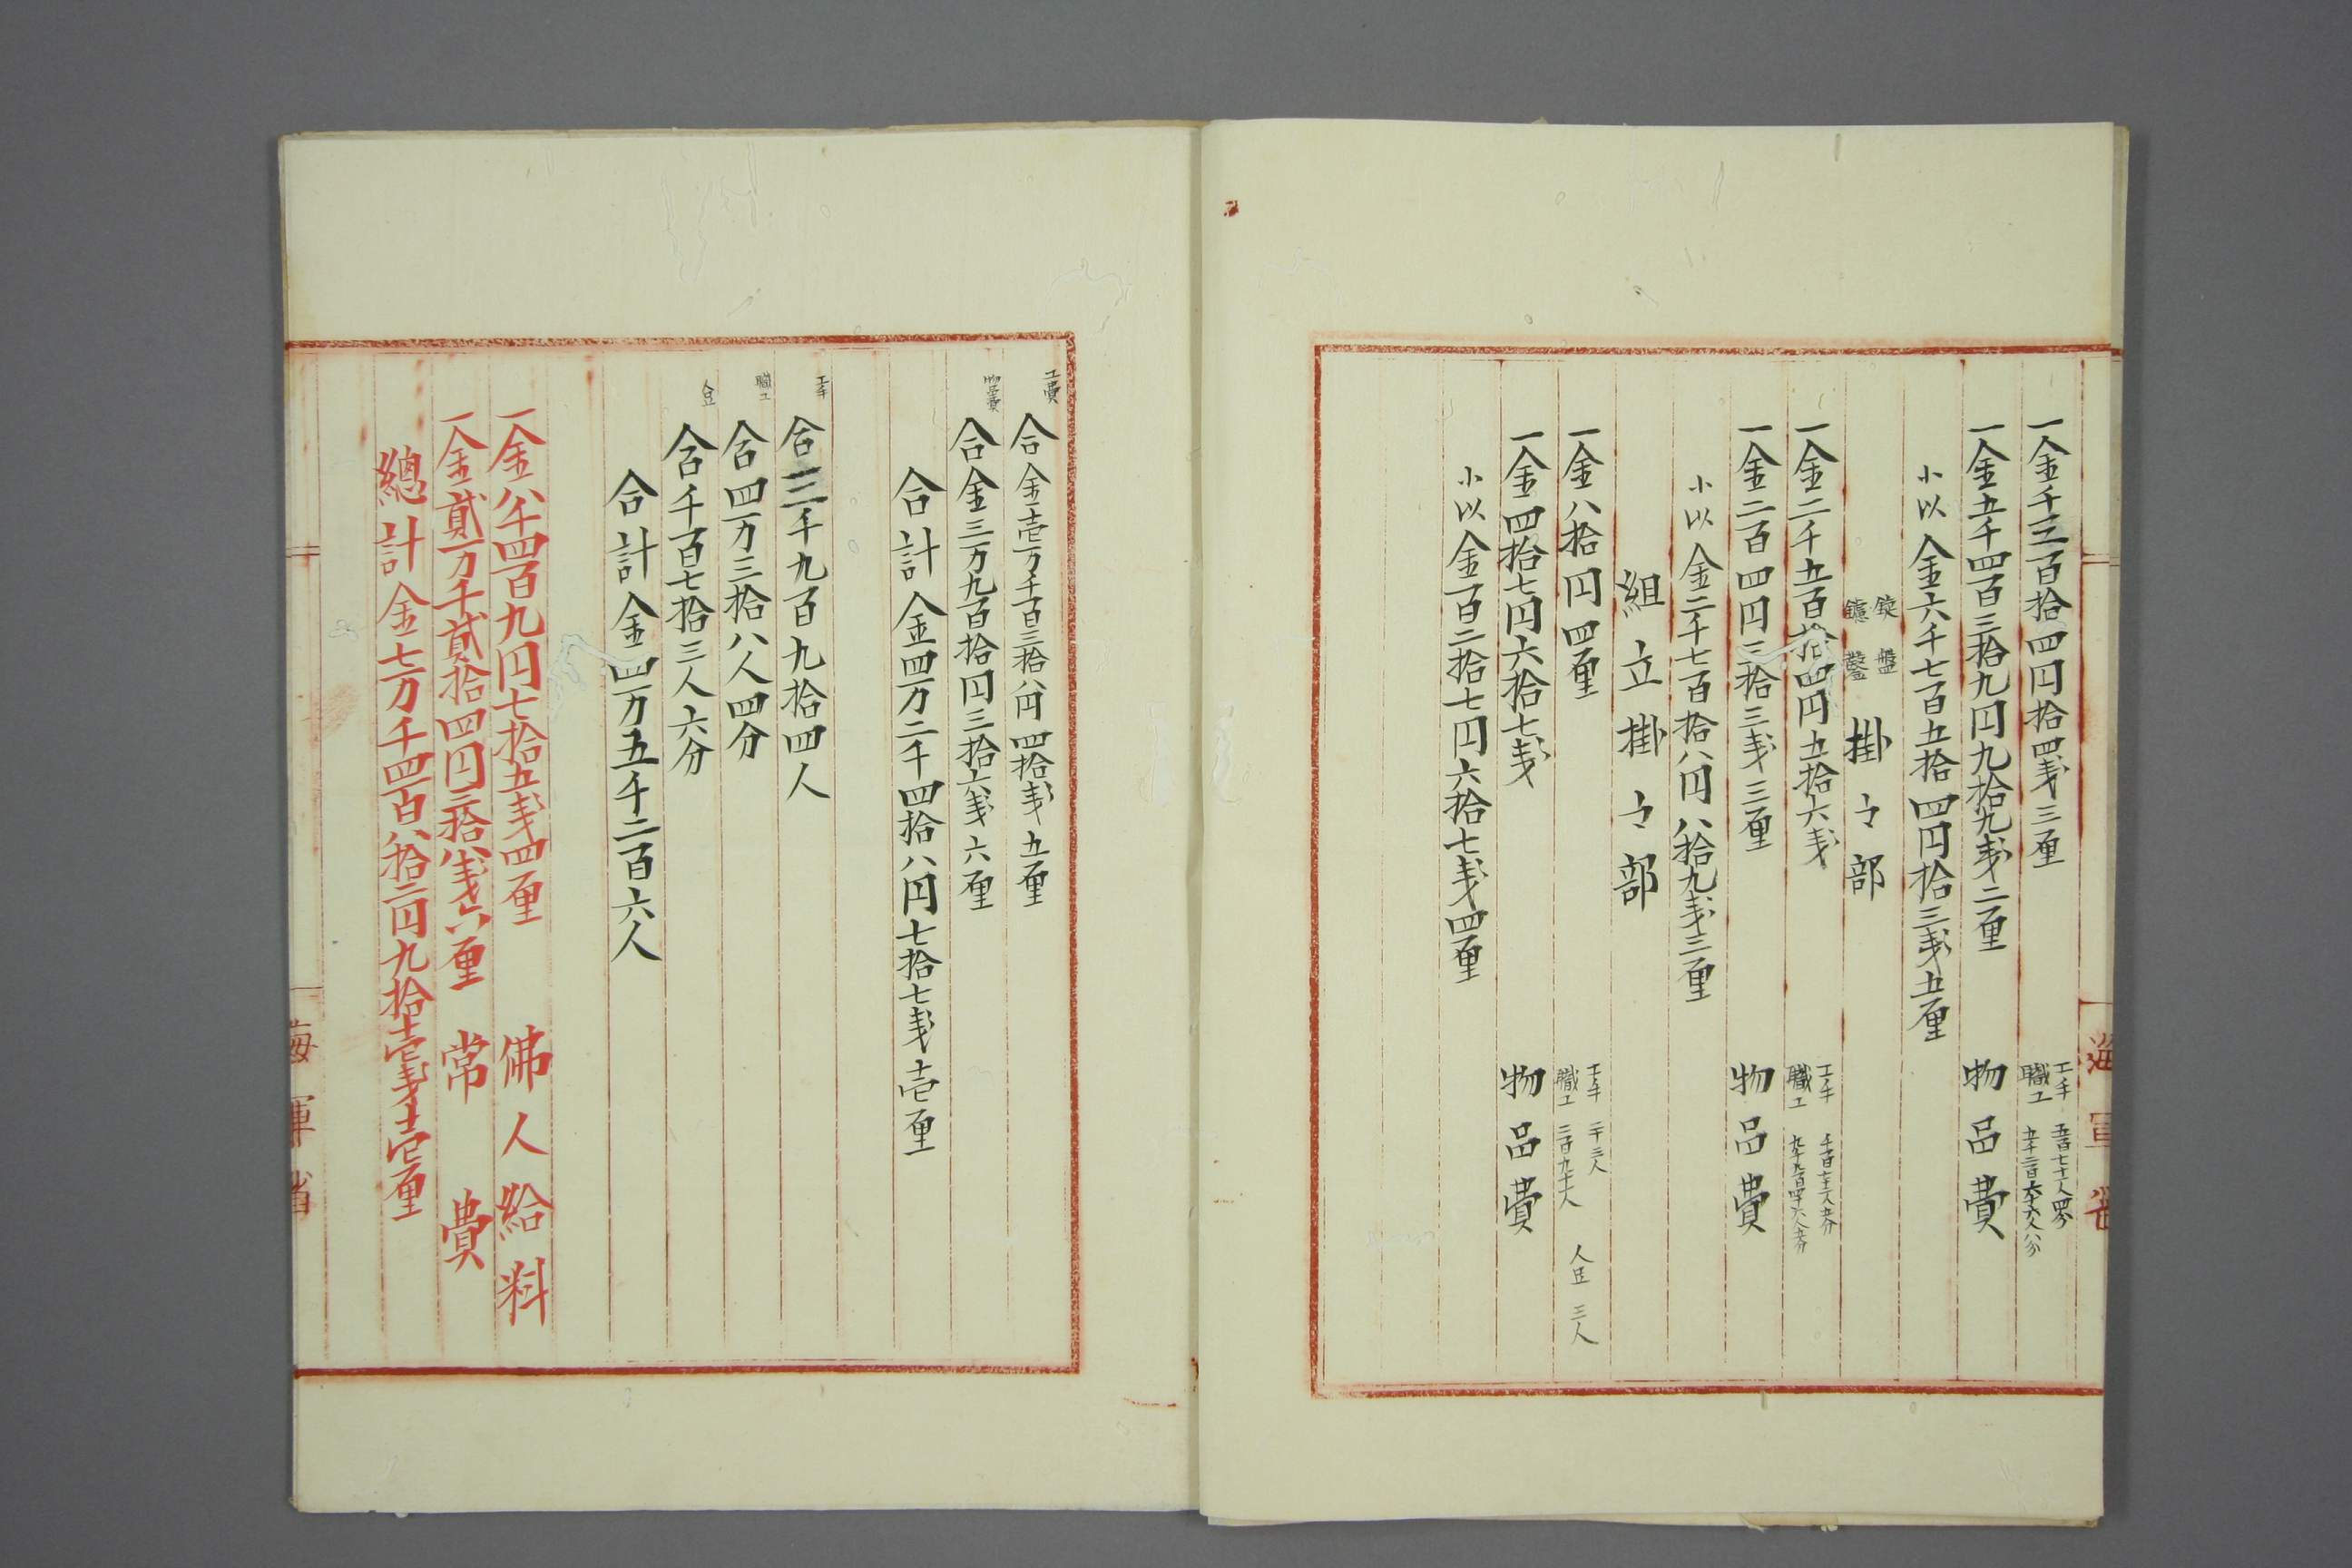 一金千三百拾四円拾四戔三厘
工手 五百七十人四分
職工 五千二百六十六人八分
一金五千四百三拾九円九拾九戔二厘 物品費
小以金六千七百五拾四円拾三戔五厘
錠盤
鑢鑿
掛り部
一金二千五百拾四円五拾六戔
工手
職工
一金二百四円三拾三戔三厘 物品費
小以金二千七百拾八円八拾九戔三厘
組立掛り部
一金八拾円四厘
工手 二十三人
職工 二百九十八人
人足 三人
一金四拾七円六拾七戔 物品費
小以金百二拾七円六拾七戔四厘
工費 合金壱万千百三拾八円四拾戔五厘
物品費 合金三万九百拾円三拾六戔六厘
合計金四万二千四拾八円七拾七戔壱厘
工手 合三千九百九拾四人
職工 合四万三拾八人四分
人足 合千百七拾三人六分
合計金四万五千二百六人
一金八千四百九円七拾五戔四厘 佛人給料
一金貮万千貮拾四円三拾八戔六厘 常費
總計金七万千四百八拾二円九拾壱戔壱厘
海軍省